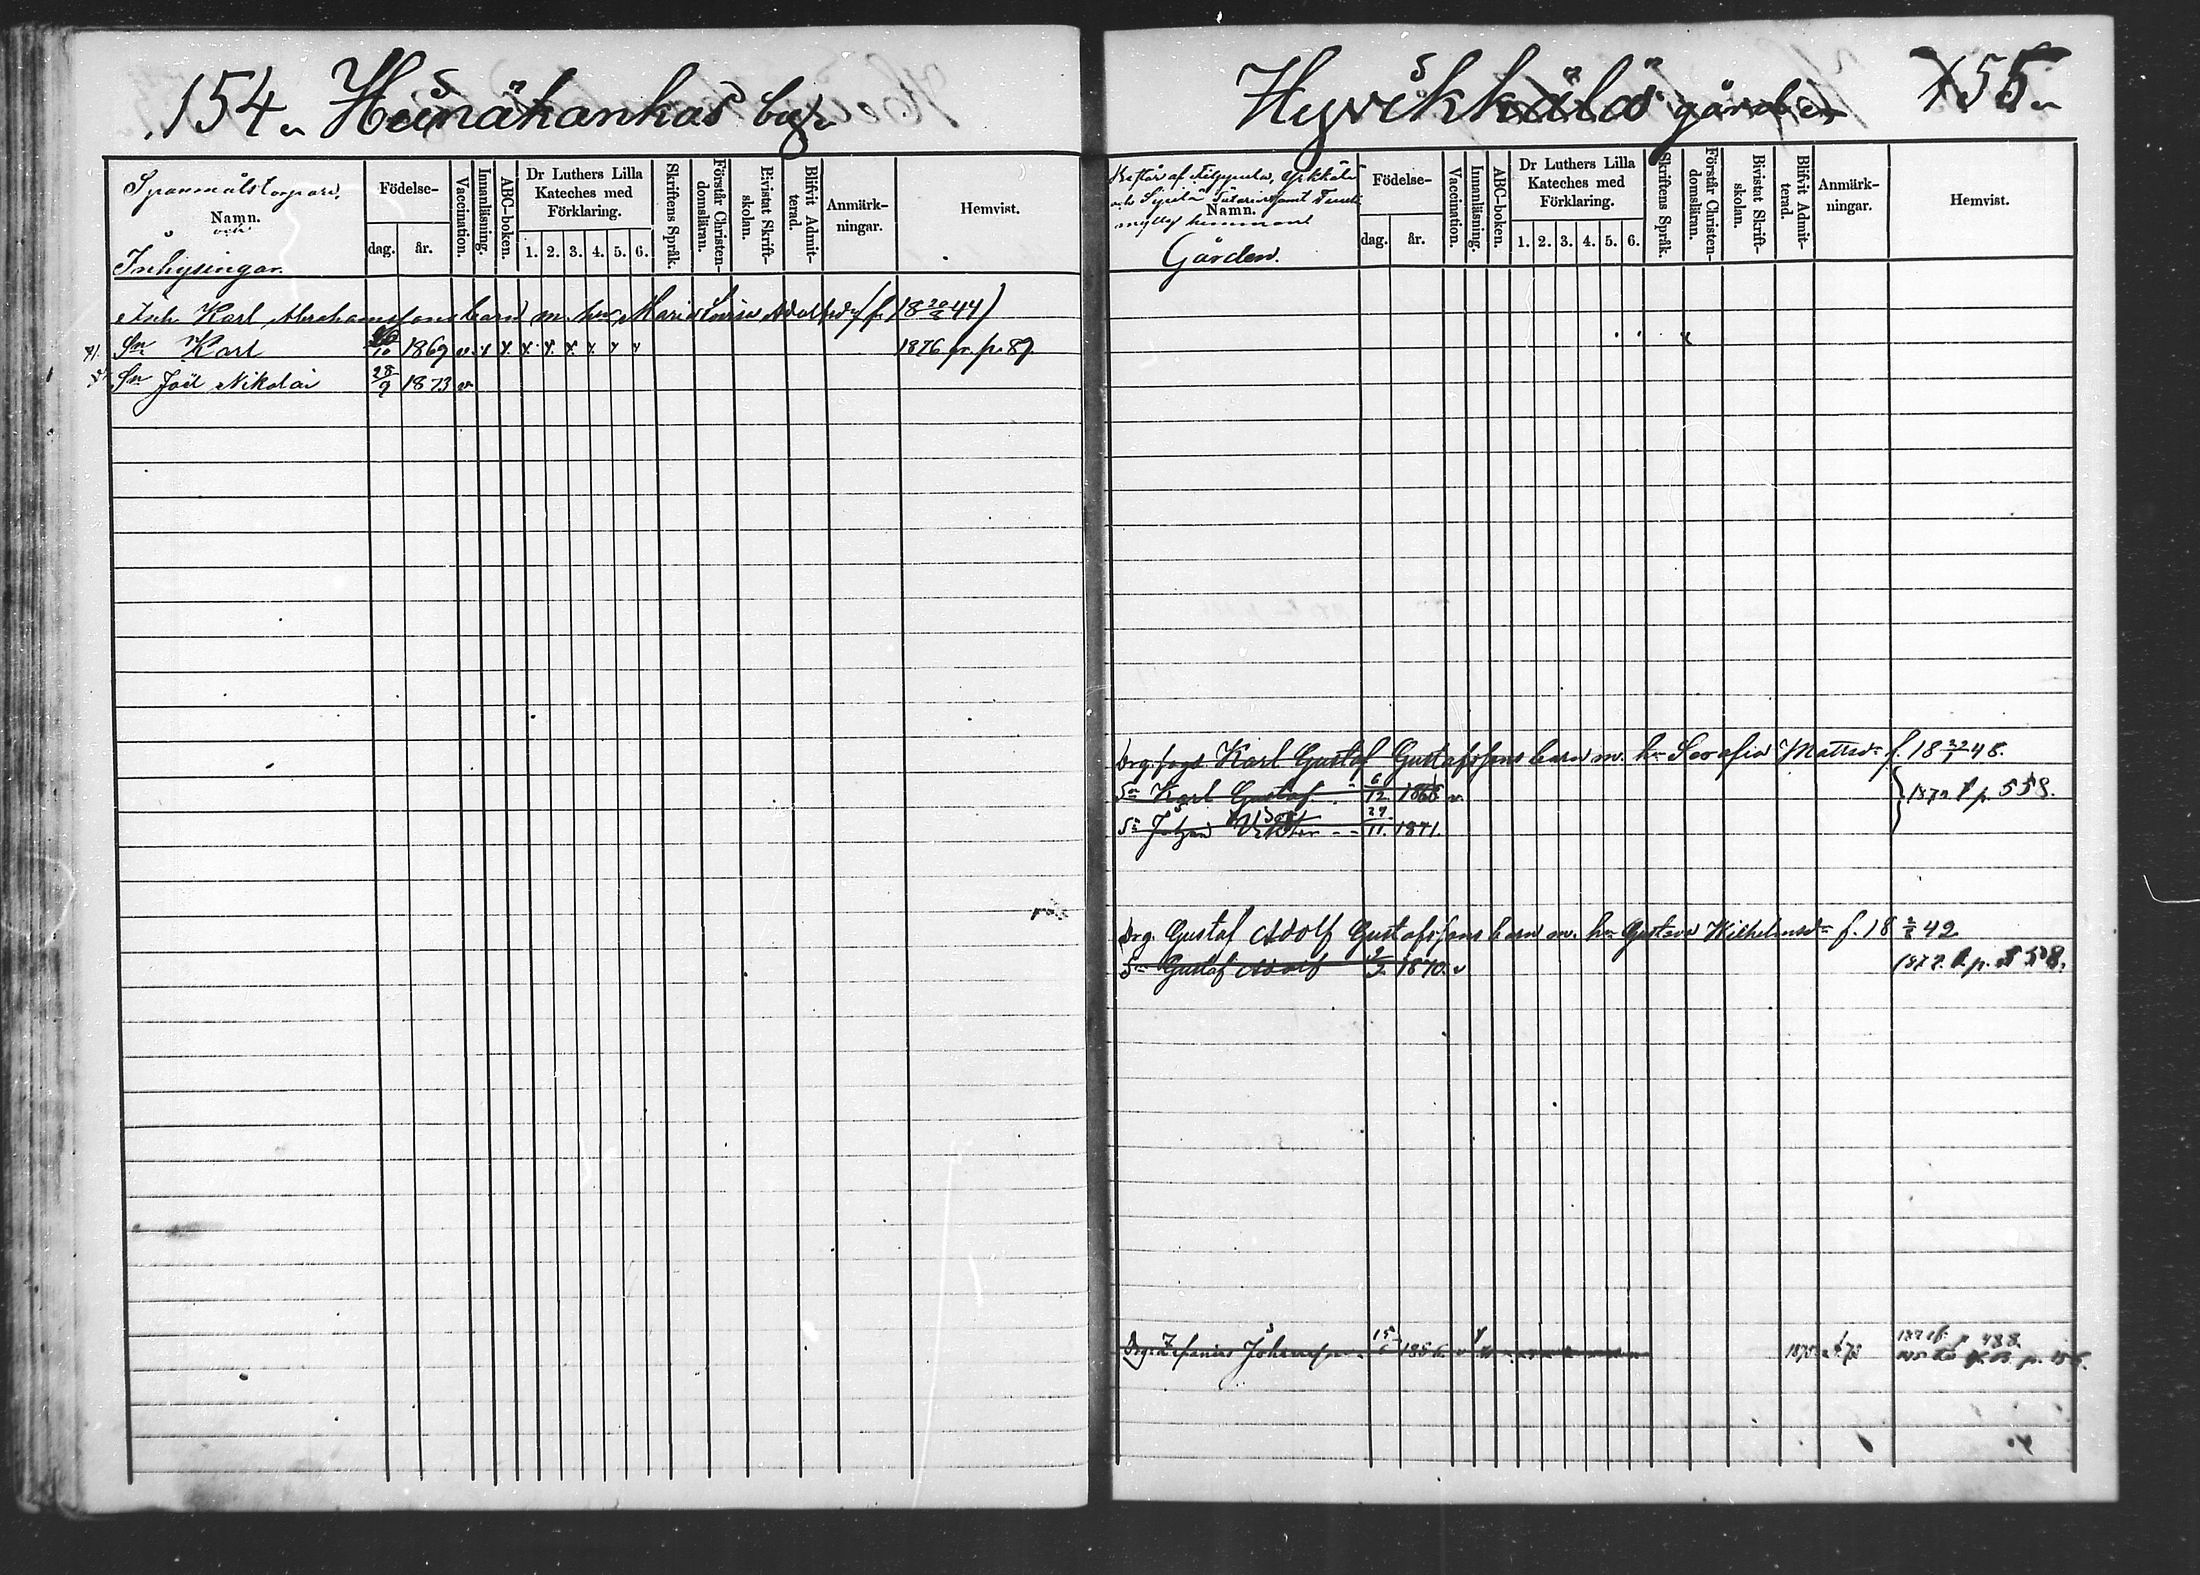 154. Heinähankas by.
Spanmålstorpare,
Namn.
och
Inhysingar.
Födelse-
dag. år.
Vaccination.
Innanläsning.
ABC-boken.
Dr Luthers Lilla
Kateches med
Förklaring.
1. 2. 3. 4. 5. 6.
Skriftens Språk.
Förstår Christen-
domsläran.
Bivistat Skrift-
skolan.
Blifvit Admit-
terad.
Anmärk-
ningar.
Hemvist.
Karl Abrahamssons barn m. hu Maria Lovisa Adolfsdr (f. 18 20/8 44)
Sn Karl 1869 v. 1876 fr. p. 87.
Sn Joel Nikolai 28/9 1873 v
Hyvikkälä gården 155.
Namn.
hemmans
Gården.
Födelse-
dag. år.
Vaccination.
Innanläsning.
ABC-boken.
Dr Luthers Lilla
Kateches med
Förklaring.
1. 2. 3. 4. 5. 6.
Skriftens Språk.
Förstår Christen-
domsläran.
Bivistat Skrift-
skolan.
Blifvit Admit-
terad.
Anmärk-
ningar.
Hemvist.
Karl Gustaf Gustafssons barn m. hu Serafia Mattsdr f. 18 22/1 48.
Sn Karl Gustaf 6/12 1868 v p. 558.
Sn Johan Viktor 27/11 1871.
Drg. Gustaf Adolf Gustafssons barn m. hu Gustava Wilhelmsdr f. 18 42
Sn Gustaf Adolf 1870. v p. 558.
Drg. Zefanias Johansson 15/6 1856 v 1873 p. 488